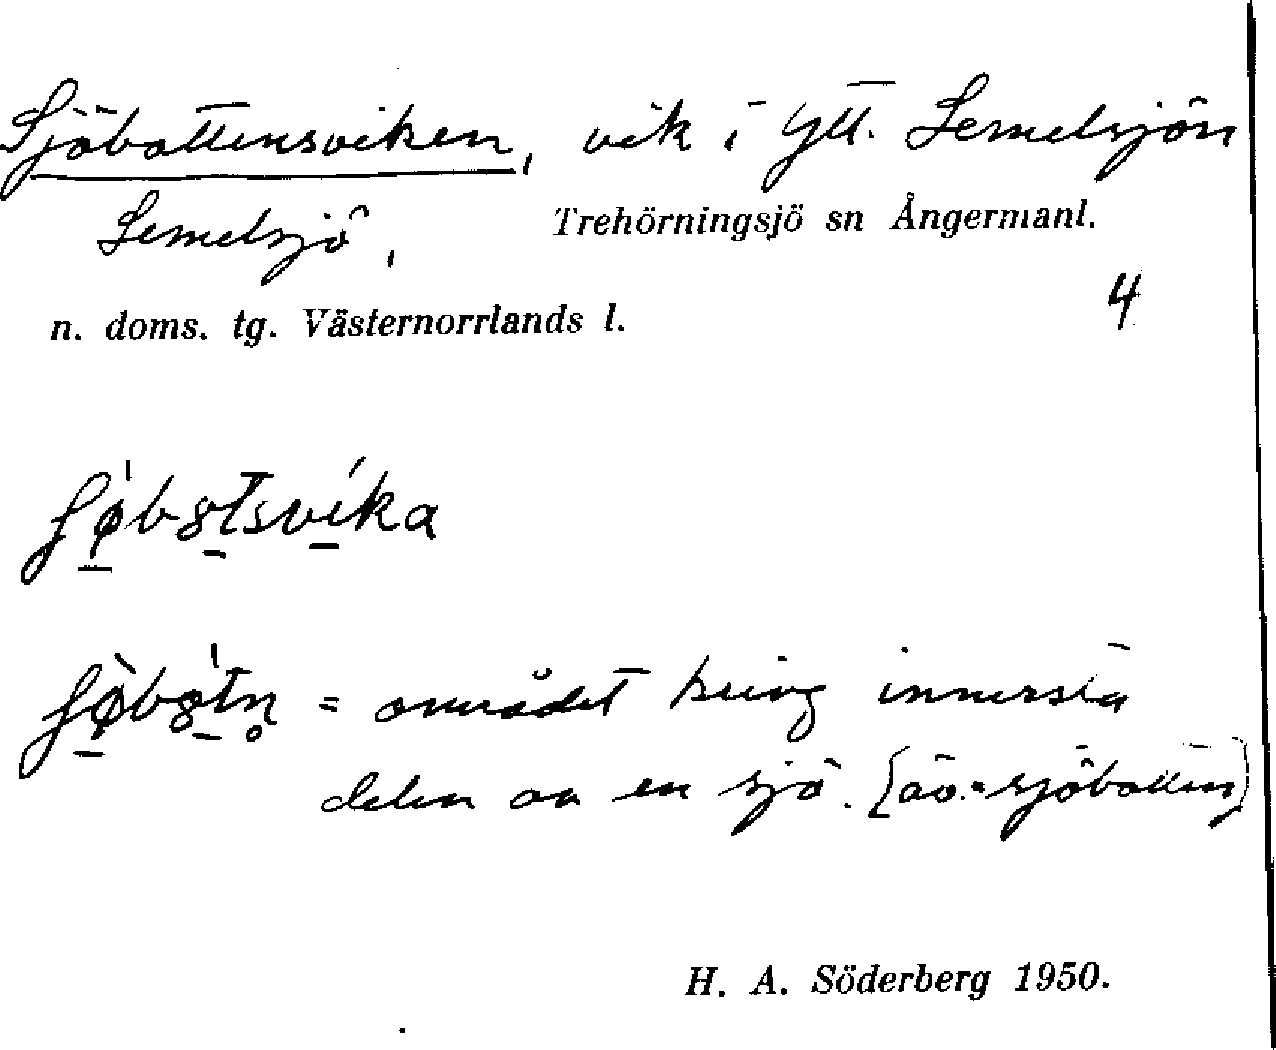 Sjöbottensviken, vik i Ytt. Lemelsjön
Lemelsjö, Trehörningsjö sn Ångermanl.
n. doms. tg. Västernorrlands l. 4
= området kring innersta
delen av en sjö. (äv. = sjöbotten)
H. A. Söderberg 1950.